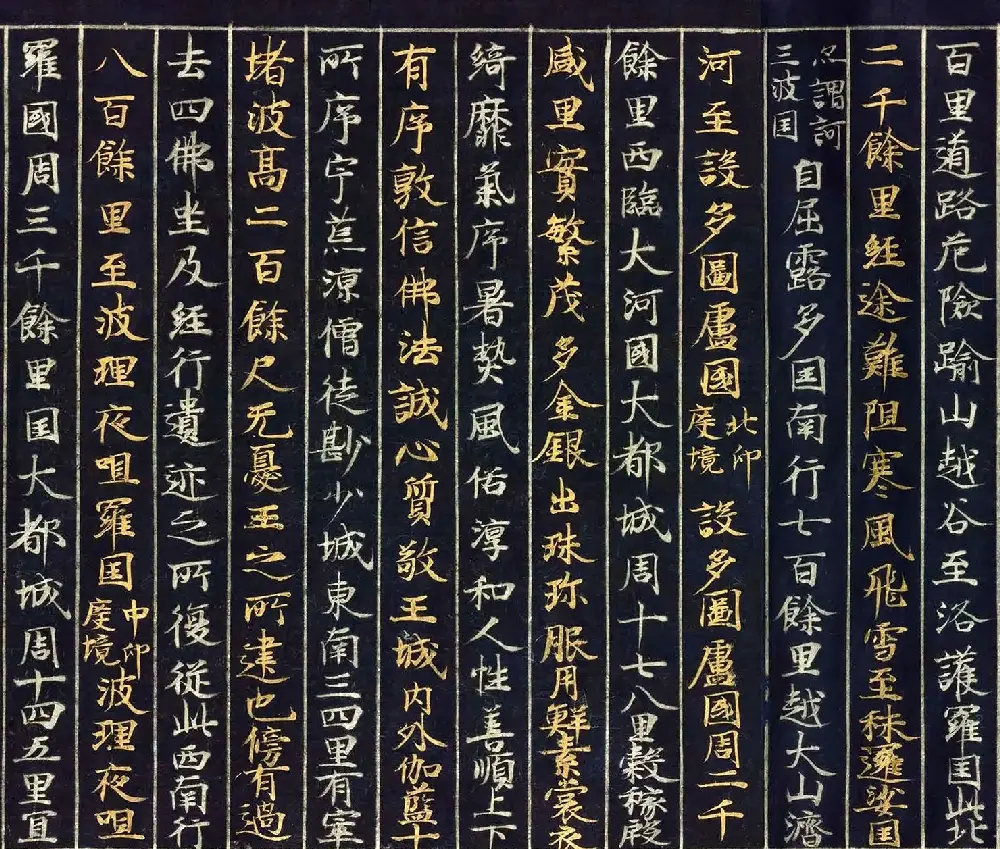 百里道路危險踰山越谷至洛護羅国此北
二千餘里経途難阻寒風飛雪至秣邏娑国
亦謂訶三波国自屈露多国南行七百餘里越大山濟
河至設多圖盧國北印度境設多圖盧國周二千
餘里西臨大河國大都城周十七八里穀稼殷
盛里實繁茂多金銀出珠珎服用鮮素裳衣
綺靡氣序暑熱風俗淳和人性善順上下
有序敦信佛法誠心質敬王城内外伽藍十
所序宇荒凉僧徒尠少城東南三四里有窣
堵波高二百餘尺无憂王之所建也傍有過
去四佛坐及経行遺迹之所復従此西南行
八百餘里至波理夜呾羅国中印度境波理夜呾
羅國周三千餘里国大都城周十四五里宜